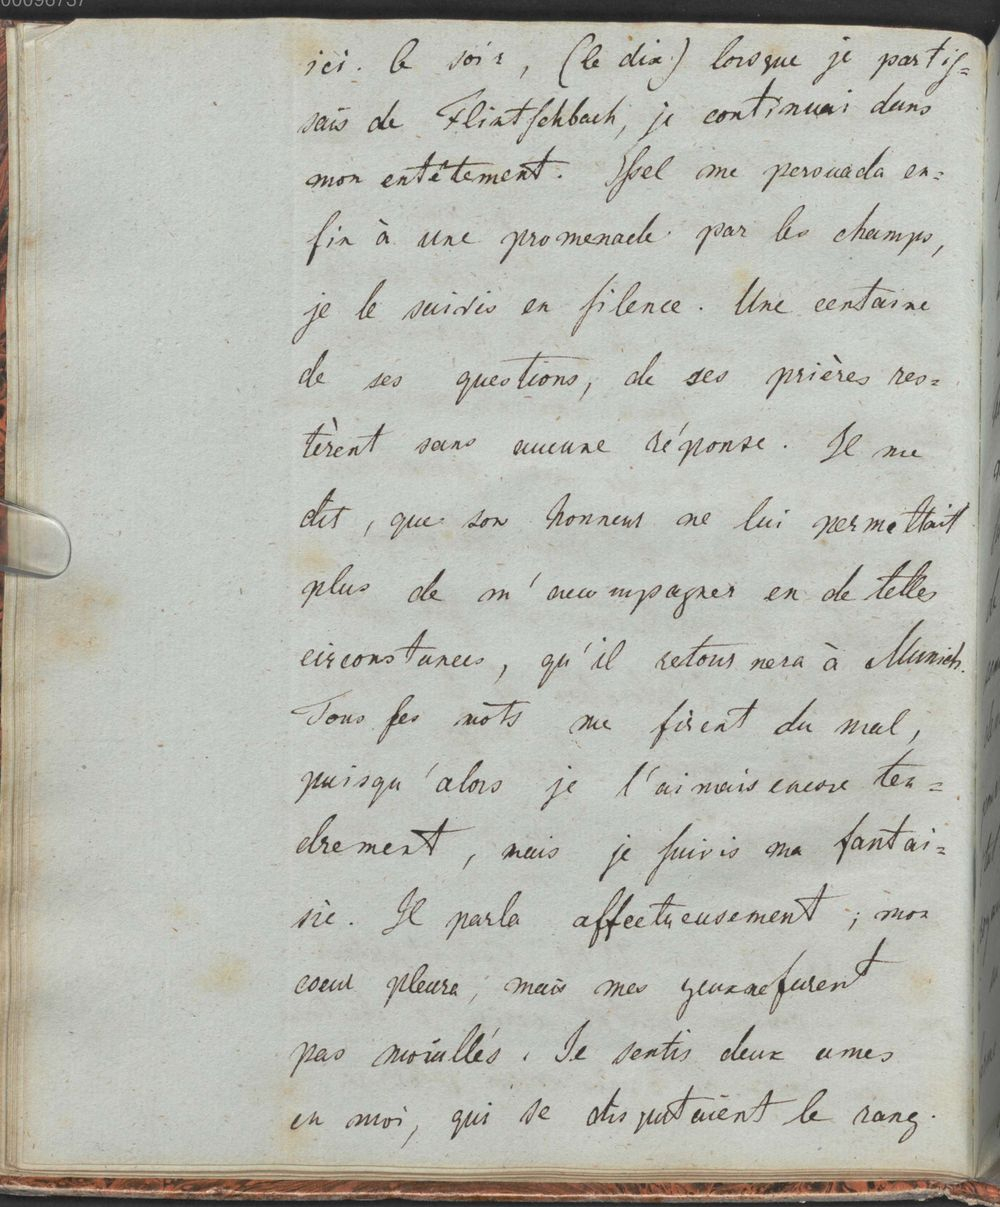 00096737
ici. le soir, (le dix) lorsque je partis=
sais de Flintschbach, je continuai dans
mon entêtement. Issel me persuada en=
fin à une promenade par les champs,
je le suivis en silence. Une centaine
de ses questions, de ses prières res=
tèrent sans aucune réponse. Il me
dit, que son honneur ne lui permettait
plus de m'accompagner en de telles
circonstances, qu'il retournera à Munich.
Tous ses mots me firent du mal,
puisqu'alors je l'aimais encore ten=
drement, mais je suivis ma fantai=
sie. Il parla affectueusement; mon
coeur pleura, mais mes yeux ne furent
pas mouillés. Je sentis deux ames
en moi, qui se disputaient le rang.